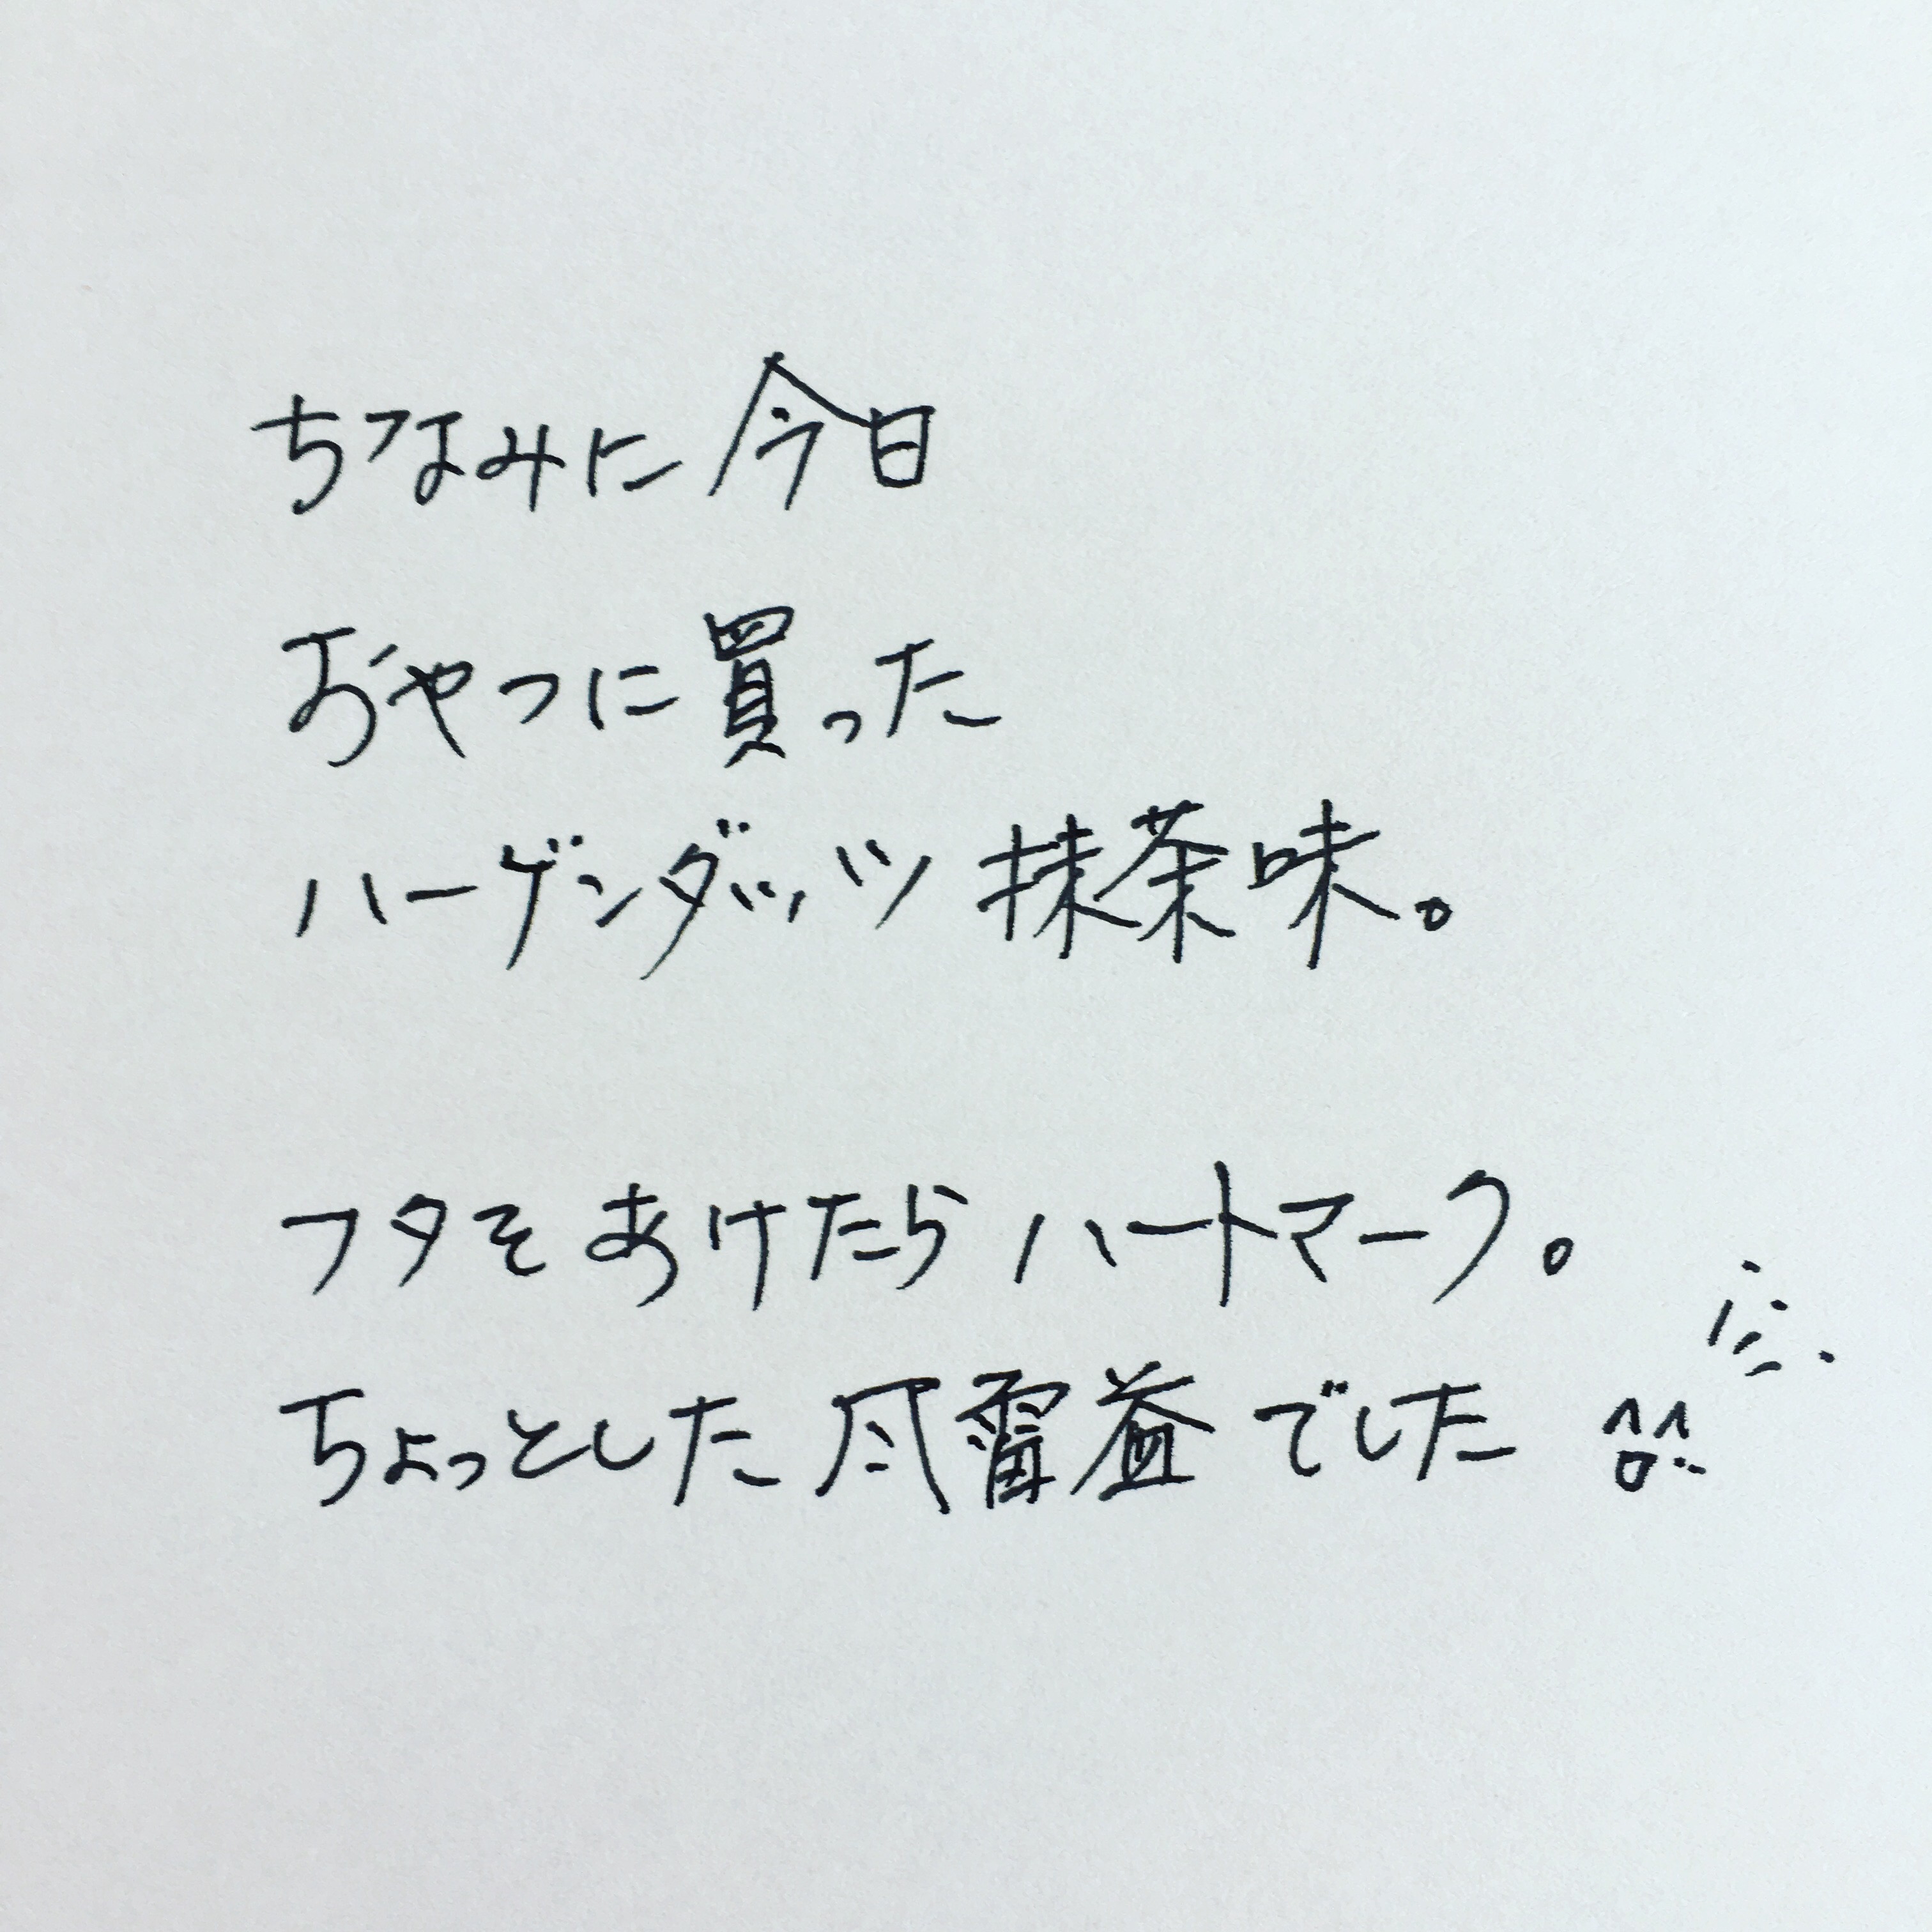 ちなみに今日
おやつに買った
ハーゲンダッツ 抹茶味。
フタを あけたら ハートマーク。
ちょっとした 風雷益 でした ^^